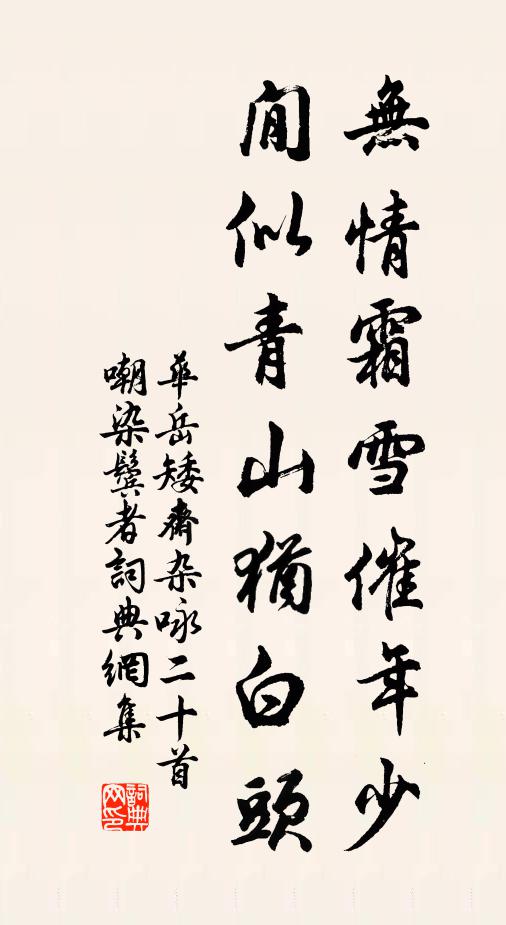 無情霜雪催年少
閒似青山猶白頭
華岳矮齋杂咏二十首
嘲染鬓者詞典網集
詞典网印